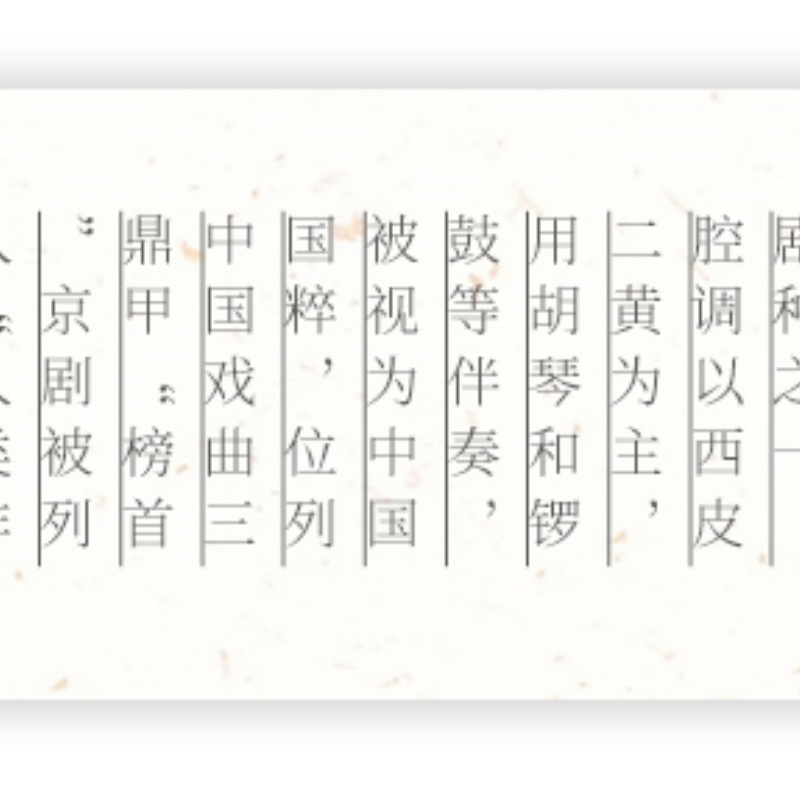 剧种之一
腔调以西皮
二黄为主，
用胡琴和锣
鼓等伴奏，
被视为中国
国粹，位列
中国戏曲三
鼎甲“榜首
”京剧被列